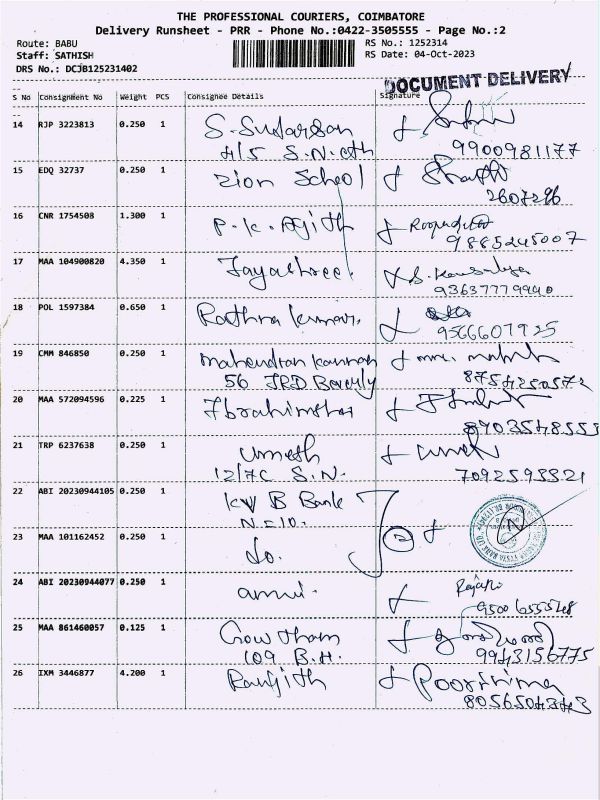 THE PROFESSIONAL COURIERS, COIMBATORE
Delivery Runsheet - PRR - Phone No.:0422-3505555 - Page No.:2
Route: BABU RS No.: 1252314
Staff: SATHISH RS Date: 04-Oct-2023
DRS No.: DCJB125231402
DOCUMENT DELIVERY
S No Consignment No Weight PCS Consignee Details Signature
14 RJP 3223813 0.250 1 S. Sudarsan
4/5 S.N. 9900981177
15 EDQ 32737 0.250 1 Zion School
2607296
16 CNR 1754508 1.300 1 P.K. Ajith
9885245007
17 MAA 104900820 4.350 1 Jayashree S. Kausalya
9363777990
18 POL 1597384 0.650 1 Rathna Kumar.
9566607925
19 CMM 846850 0.250 1 Mahendran Kannan
56 JRD Beverly 8754250572
20 MAA 572094596 0.225 1 Ibrahimsha
8903548553
21 TRP 6237638 0.250 1 Umesh Umesh
12/7C S.N. 7092593821
22 ABI 20230944105 0.250 1 KVB Bank
23 MAA 101162452 0.250 1 do. 2
24 ABI 20230944077 0.250 1
9500655548
25 MAA 861460057 0.125 1 Gowtham
109 B.H. 9943156775
26 IXM 3446877 4.200 1 Ranjith Poornima
8056504343